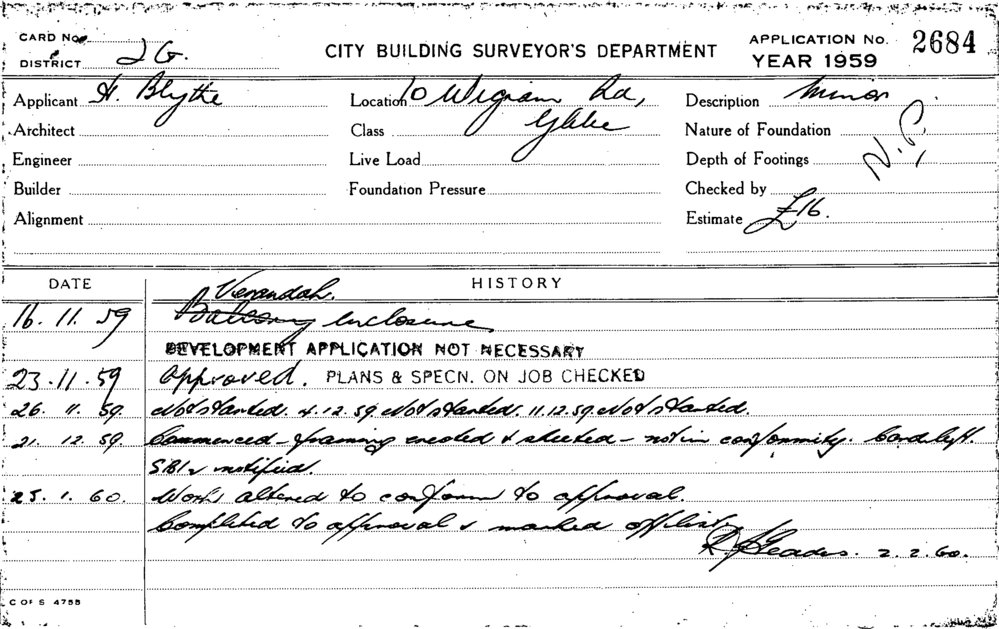 CARD No.
DISTRICT 2G.
CITY BUILDING SURVEYOR'S DEPARTMENT
APPLICATION No. 2684
YEAR 1959
Applicant H. Blythe
Location 10 Wigram Rd,
Description Minor
Architect
Class Glebe
Nature of Foundation
Engineer
Live Load
Depth of Footings N.P.
Builder
Foundation Pressure
Checked by
Alignment
Estimate £16.
DATE
HISTORY
Verandah.
16. 11. 59 Balcony enclosure
DEVELOPMENT APPLICATION NOT NECESSARY
23.11.59 Approved. PLANS & SPECN. ON JOB CHECKED
26. 11. 59. Not started. 4.12.59. Not started. 11.12.59. Not started.
21. 12. 59. Commenced - framing erected & sheeted - not in conformity. Card left.
SBI notified.
25. 1. 60. Work altered to conform to approval.
Completed to approval & marked off list
2.2.60.
C OF S 4755